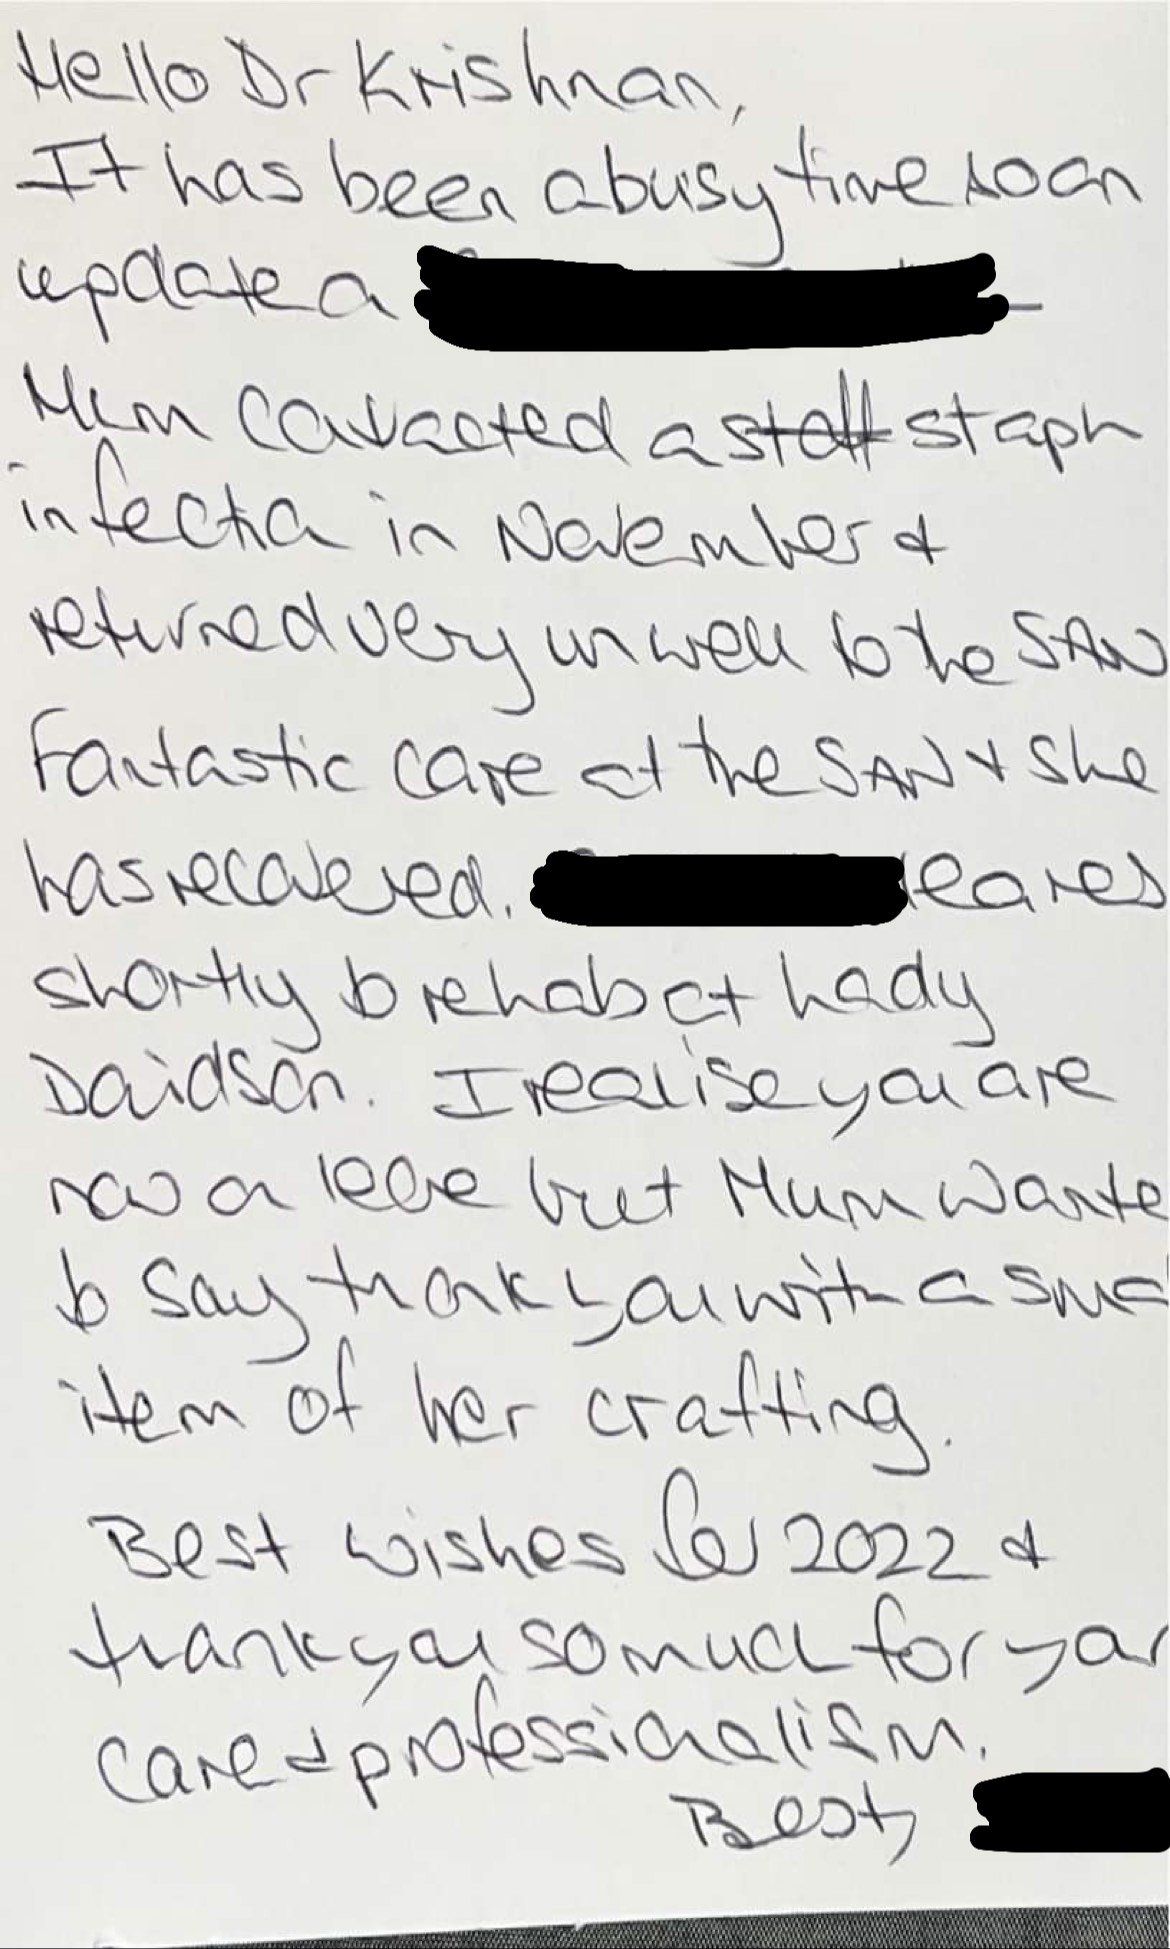 Hello Dr Krishnan,
It has been a busy time so an
update on
Mum contracted a staff staph
infection in November &
returned very unwell to the SAN
Fantastic care at the SAN & she
has recovered. leaves
shortly to rehab at Lady
Davidson. I realise you are
now on leave but Mum wante
to say thank you with a sma
item of her crafting.
Best wishes for 2022 &
thank you so much for your
care & professionalism.
Best,